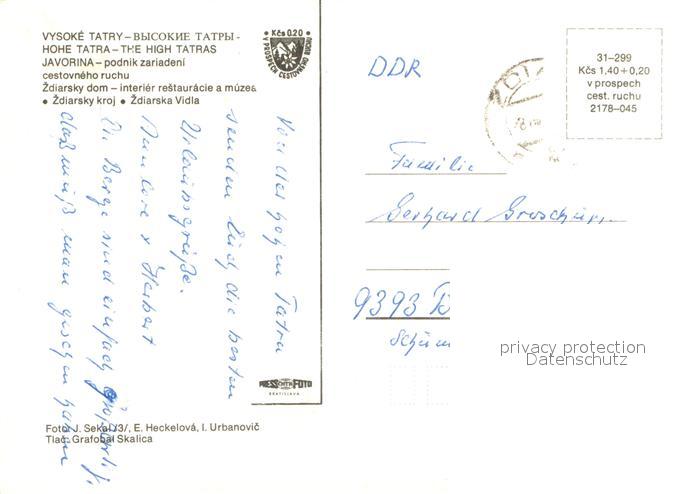 VYSOKÉ TATRY – ВЫСОКИЕ ТАТРЫ -
HOHE TATRA – THE HIGH TATRAS
JAVORINA – podnik zariadení
cestovného ruchu
Ždiarsky dom – interiér reštaurácie a múzea
• Ždiarsky kroj • Ždiarska Vidla
• Kčs 0.20 •
V PROSPECH CESTOVNÉHO RUCHU
31–299
Kčs 1,40 + 0,20
v prospech
cest. ruchu
2178–045
DDR
Familie
Gerhard
9393
Von der hohen Tatra
senden Euch die besten
Urlaubsgrüße.
Herbert
Die Berge sind einfach
daß muß man gesehen haben
PRESSFOTO
BRATISLAVA
Foto: J. Sekal /3/, E. Heckelová, I. Urbanovič
Tlač: Grafobal Skalica
privacy protection
Datenschutz